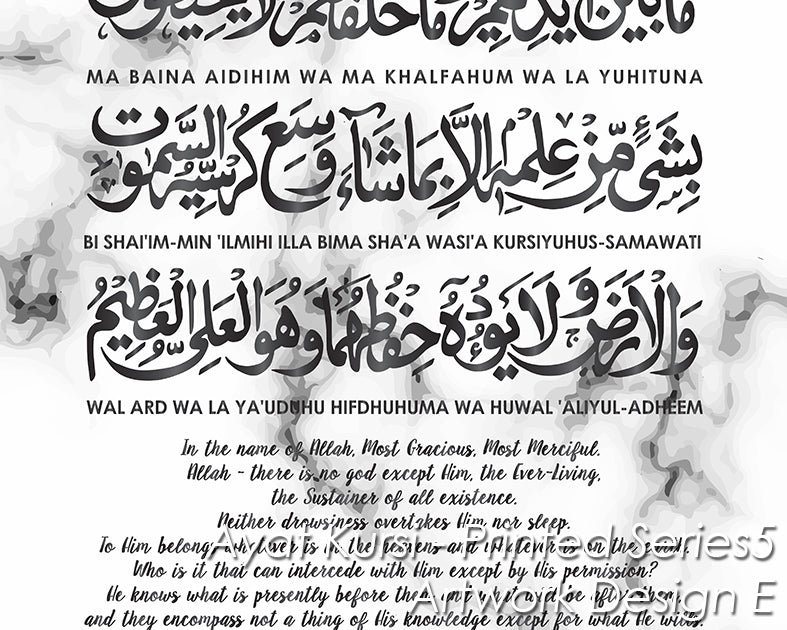 مَا بَيْنَ اَيْدِيْهِمْ وَمَا خَلْفَهُمْ وَلَا يُحِيْطُوْنَ
MA BAINA AIDIHIM WA MA KHALFAHUM WA LA YUHITUNA
بِشَیْءٍ مِّنْ عِلْمِهٖ اِلَّا بِمَاشَآءَ وَسِعَ كُرْسِيُّهُ السَّمٰوٰتِ
BI SHAI'IM-MIN 'ILMIHI ILLA BIMA SHA'A WASI'A KURSIYUHUS-SAMAWATI
وَالْاَرْضَ وَلَا يَـُٔوْدُهٗ حِفْظُهُمَا وَهُوَ الْعَلِیُّ الْعَظِيْمُ
WAL ARD WA LA YA'UDUHU HIFDHUHUMA WA HUWAL 'ALIYUL-ADHEEM
In the name of Allah, Most Gracious, Most Merciful.
Allah - there is no god except Him, the Ever-Living,
the Sustainer of all existence.
Neither drowsiness overtakes Him nor sleep.
To Him belongs whatever is in the heavens and whatever is on the earth.
Who is it that can intercede with Him except by His permission?
He knows what is presently before them and what will be after them,
and they encompass not a thing of His knowledge except for what He wills.
Ayat Kursi - Printed Series5
Artwork Design E